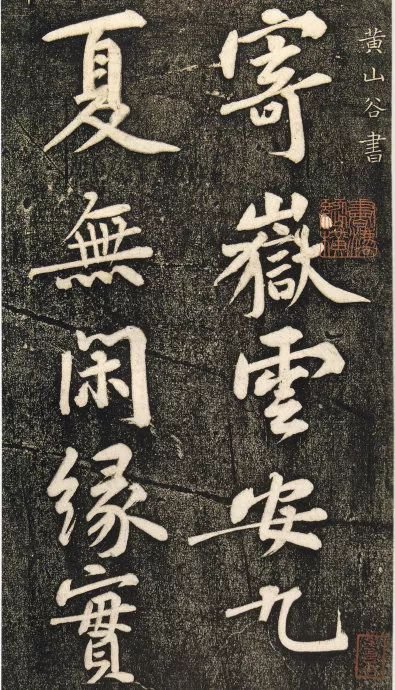 黄山谷書
寄嶽雲安九
夏無閑縁實